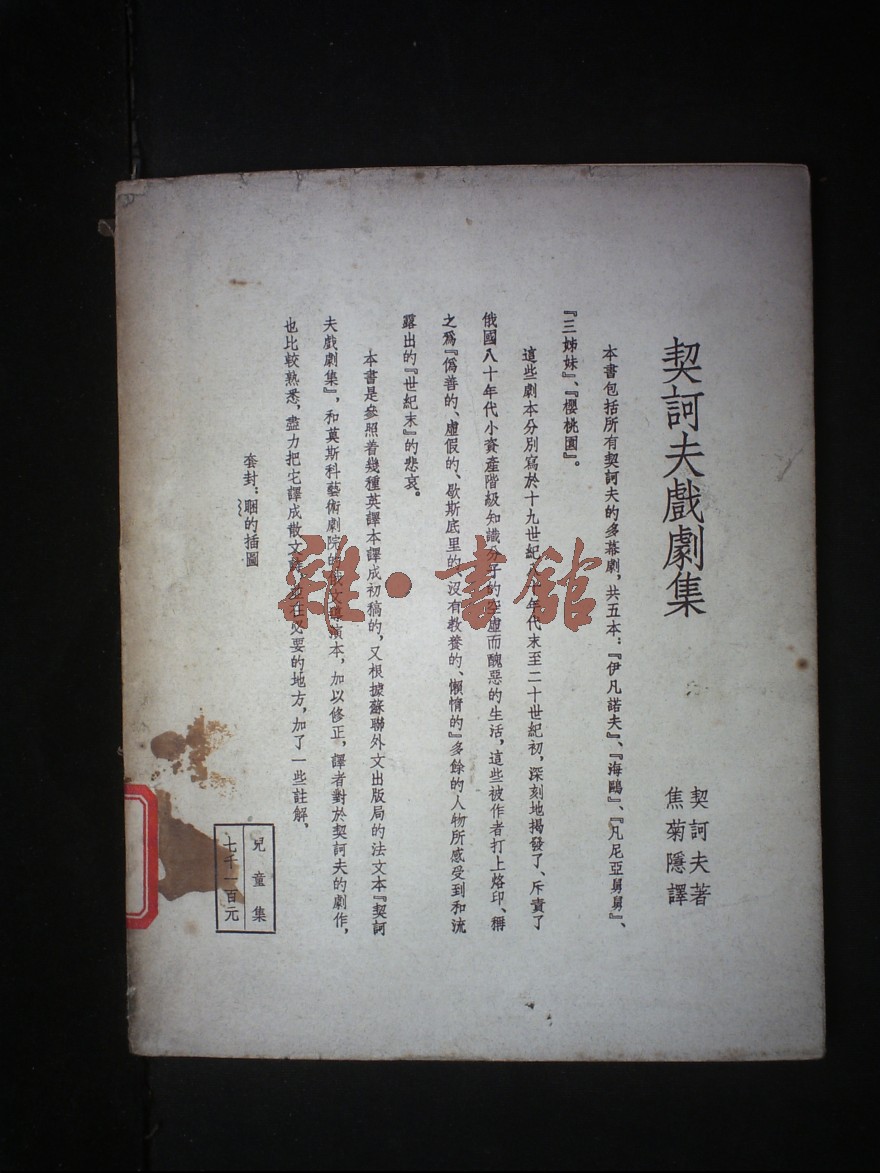 契訶夫戲劇集
契訶夫著
焦菊隱譯
本書包括所有契訶夫的多幕劇，共五本：『伊凡諾夫』、『海鷗』、『凡尼亞舅舅』、
『三姊妹』、『櫻桃園』。
這些劇本分別寫於十九世紀八十年代末至二十世紀初，深刻地揭發了、斥責了
俄國八十年代小資產階級知識分子的空虛而醜惡的生活，這些被作者打上烙印、稱
之爲『僞善的、虛假的、歇斯底里的、沒有教養的、懶惰的』多餘的人物所感受到和流
露出的『世紀末』的悲哀。
本書是參照着幾種英譯本譯成初稿的，又根據蘇聯外文出版局的法文本『契訶
夫戲劇集』，和莫斯科藝術劇院的俄文導演本，加以修正，譯者對於契訶夫的劇作，
也比較熟悉，盡力把它譯成散文詩，並在必要的地方，加了一些註解，
套封：睏的插圖
兒童集
七千一百元
雜·書館